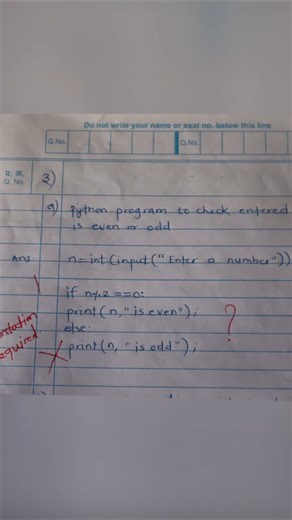 Do not write your name or seat no. below this line
Q.No. Q.No.
प्र. क्र.
Q. No. 3)
a) Python program to check entered
is even or odd
Ans n=int(input("Enter a number"))
if n%2==n:
print(n,"is even");
else:
print(n, "is odd");
?
required